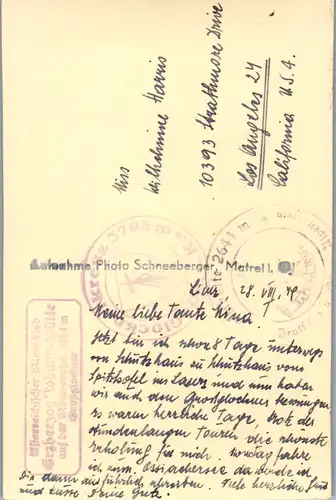 Miss
Wilhelmine Harris
10393 Strathmore Drive
Los Angeles 24
California U.S.A.
Aufnahme Photo Schneeberger, Matrei i. O.
3798 m
Österreichischer Alpenklub
Erzherzog Johann-Hütte
auf der Adlersruhe 3454 m
Großglockner
Hütte 2641 m
Lienz, 28. VII. 49
Meine liebe Tante Mina!
Jetzt bin ich etwa 8 Tage unterwegs
von Schutzhaus zu Schutzhaus vom
und nun haben
wir auch den Grossglockner bezwungen
es waren herrliche Tage, trotz der
stundenlangen Touren die schönste
Erholung für mich. Montag fahre
ich zum Ossiachersee da werde ich
Dir dann ausführlich schreiben. Viele herzliche Grüsse
und Küsse Deine Grete.